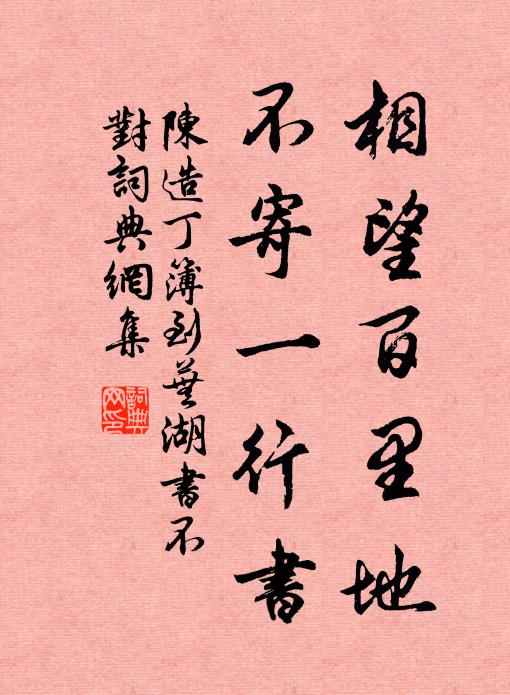 相望百里地
不寄一行書
陳造丁簿到蕪湖書不
對詞典網集
詞典網印